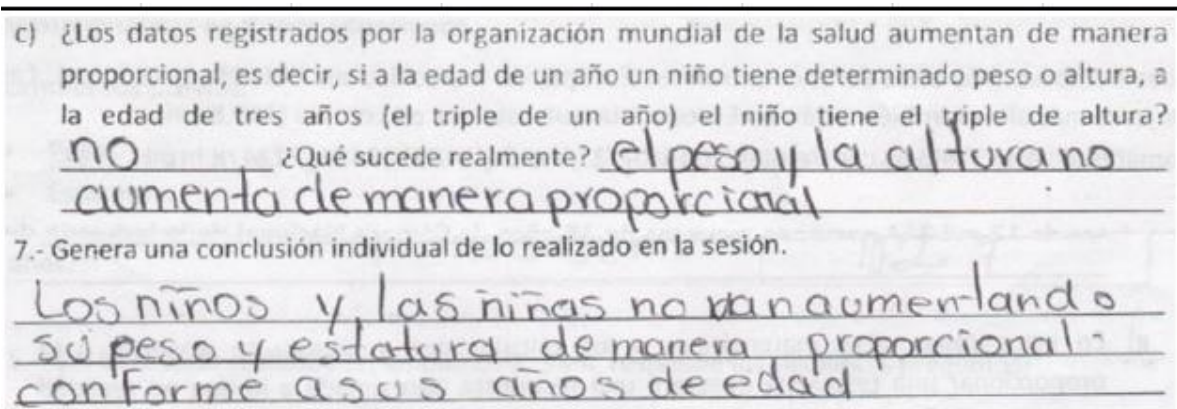 c) ¿Los datos registrados por la organización mundial de la salud aumentan de manera
proporcional, es decir, si a la edad de un año un niño tiene determinado peso o altura, a
la edad de tres años (el triple de un año) el niño tiene el triple de altura?
no ¿Qué sucede realmente? el peso y la altura no
aumenta de manera proporcional
7.- Genera una conclusión individual de lo realizado en la sesión.
Los niños y las niñas no van aumentando
su peso y estatura de manera proporcional
conforme a sus años de edad